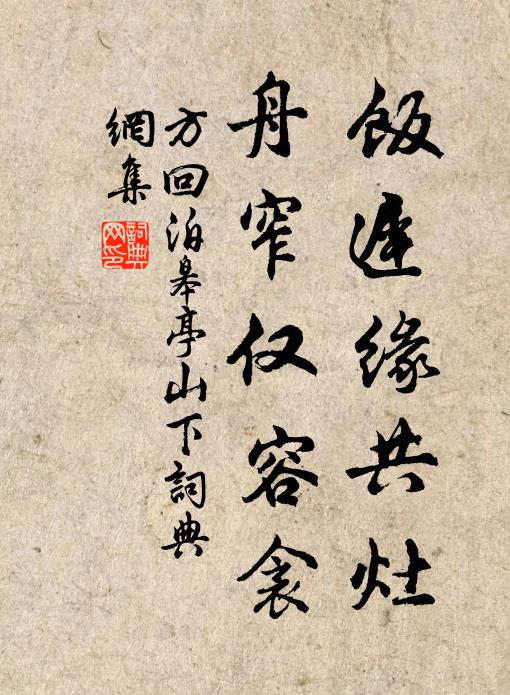 飯遲緣共灶
舟窄仅容衾
方回泊皋亭山下詞典
網集
詞典网印